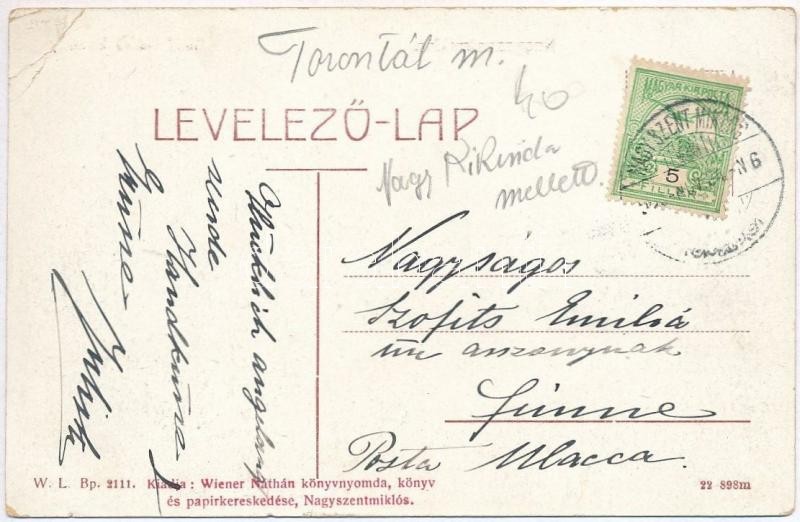 Torontál m.
LEVELEZŐ-LAP
Nagy Kikinda
mellett.
MAGYAR KIR. POSTA
5
FILLÉR
NAGYSZENT-MIKLÓS
Nagyságos
Szofits Emilia
úr asszonynak
Fiume
Posta Mlacca.
Glücklich angelangt
Handküsse
W. L. Bp. 2111. Kiadja: Wiener Náthán könyvnyomda, könyv
és papirkereskedése, Nagyszentmiklós.
22 898m